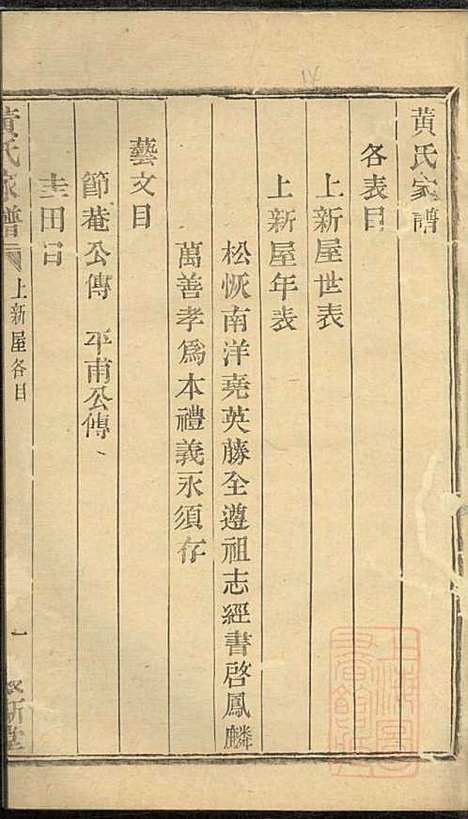 黃氏家譜
各表目
上新屋世表
上新屋年表
松恢南洋堯英藤全遵祖志經書啓鳳麟
萬善孝爲本禮義永須存
藝文目
節菴公傳 平甫公傳
圭田目
黃氏家譜
上新屋各目
一
敘新堂
上海圖書館藏